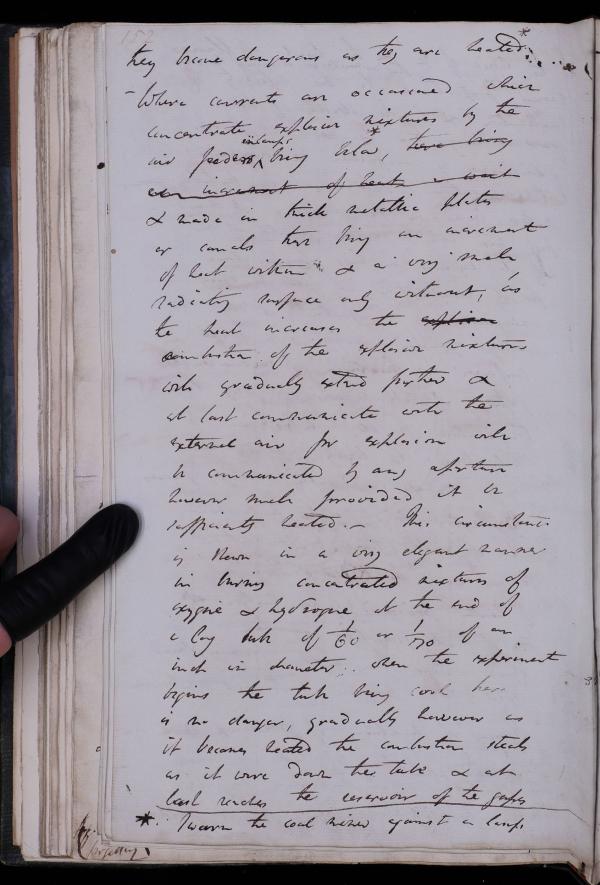 152
they become dangerous as they are heated *
- Where currents are occasioned which
concentrate explosive mixtures by the
in lamps *
air feeders being below, there being
an increment of heat
& made in thick metallic plates
or canals there being an increment
of heat within & a very small
radiating surface only without, as
the heat increases the explosion
combustion of the explosive mixtures
will gradually extend further &
at last communicate with the
external air for explosion will
be communicated by any aperture
however small provided it be
sufficiently heated. - This circumstance
is shewn in a very elegant manner
in burning concentrated mixtures of
oxygene & hydrogene at the end of
a long tube of 1/60 or 1/70 of an
inch in diameter: when the experiment
begins the tube being cool there
is no danger, gradually however as
it becomes heated the combustion steals
as it were down the tube & at
last reaches the reservoir of the gases
* I warn the coal miner against a lamp